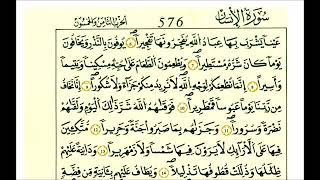 سُورَةُ الإِنسَانِ 576 الحِزْبُ الثَّامِنُ وَالخَمْسُونَ
عَيْنًا يَشْرَبُ بِهَا عِبَادُ اللَّهِ يُفَجِّرُونَهَا تَفْجِيرًا ٦ يُوفُونَ بِالنَّذْرِ وَيَخَافُونَ
يَوْمًا كَانَ شَرُّهُ مُسْتَطِيرًا ٧ وَيُطْعِمُونَ الطَّعَامَ عَلَىٰ حُبِّهِ مِسْكِينًا وَيَتِيمًا
وَأَسِيرًا ٨ إِنَّمَا نُطْعِمُكُمْ لِوَجْهِ اللَّهِ لَا نُرِيدُ مِنكُمْ جَزَاءً وَلَا شُكُورًا ٩ إِنَّا نَخَافُ
مِن رَّبِّنَا يَوْمًا عَبُوسًا قَمْطَرِيرًا ١٠ فَوَقَىٰهُمُ اللَّهُ شَرَّ ذَٰلِكَ الْيَوْمِ وَلَقَّىٰهُمْ
نَضْرَةً وَسُرُورًا ١١ وَجَزَىٰهُم بِمَا صَبَرُوا جَنَّةً وَحَرِيرًا ١٢ مُتَّكِئِينَ
فِيهَا عَلَى الْأَرَائِكِ لَا يَرَوْنَ فِيهَا شَمْسًا وَلَا زَمْهَرِيرًا ١٣ وَدَانِيَةً عَلَيْهِمْ
ظِلَٰلُهَا وَذُلِّلَتْ قُطُوفُهَا تَذْلِيلًا ١٤ وَيُطَافُ عَلَيْهِم بِآنِيَةٍ مِّن فِضَّةٍ